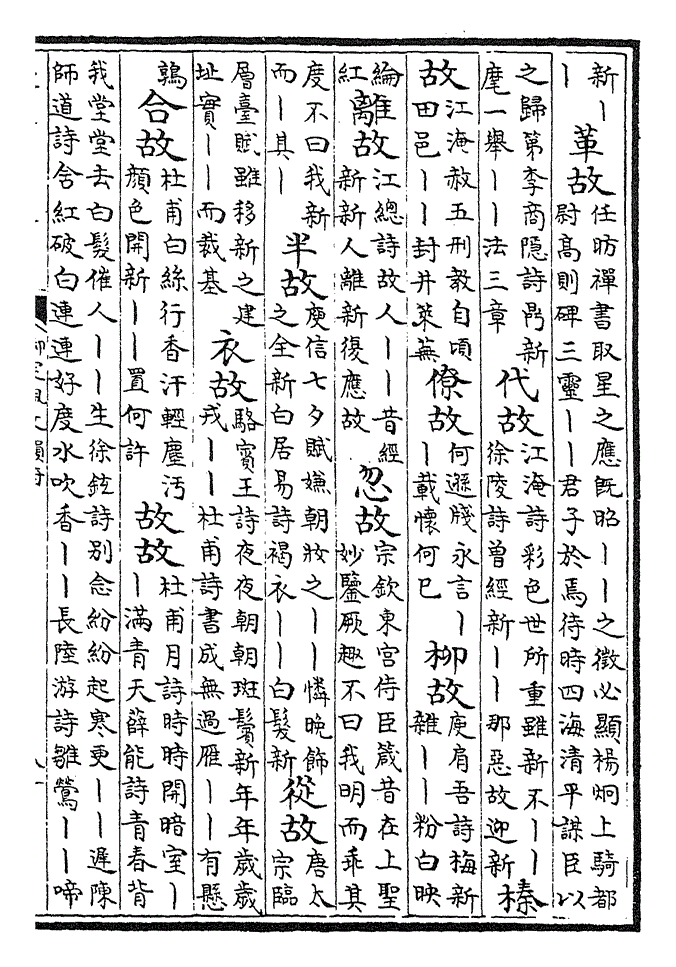 新丨丨革故任昉禪書取星之應旣昭丨丨之徵必顯楊炯上騎都尉高則碑三靈丨丨君子於焉待時四海清平謀臣以
之歸第李商隱詩鼎新麾一舉丨丨法三章代故江淹詩彩色世所重雖新不丨丨徐陵詩曾經新丨丨那惡故迎新榛
故江淹赦五刑教自頃田邑丨丨封井萊蕪僚故何遜牋永言丨丨載懷何已柳故庾肩吾詩梅新雜丨丨粉白映
綸紅離故江總詩故人丨丨昔經新新人離新復應故忽故宗欽東宮侍臣箴昔在上聖妙鑒厥趣不曰我明而乖其
度不曰我新而丨其丨半故庾信七夕賦嫌朝妝之丨丨憐晚飾之全新白居易詩褐衣丨丨白髮新從故唐太宗臨
層臺賦雖移新之建址實丨丨而裁基衣故駱賓王詩夜夜朝朝斑鬢新年年歲歲戎丨丨杜甫詩書成無過雁丨丨有懸
鶉合故杜甫白絲行香汗輕塵汚顏色開新丨丨置何許故故杜甫月詩時時開暗室丨丨滿青天薛能詩青春背
我堂堂去白髮催人丨丨生徐鉉詩別念紛紛起寒更丨丨遲陳師道詩含紅破白連連好度水吹香丨丨長陸游詩雛鶯丨丨啼